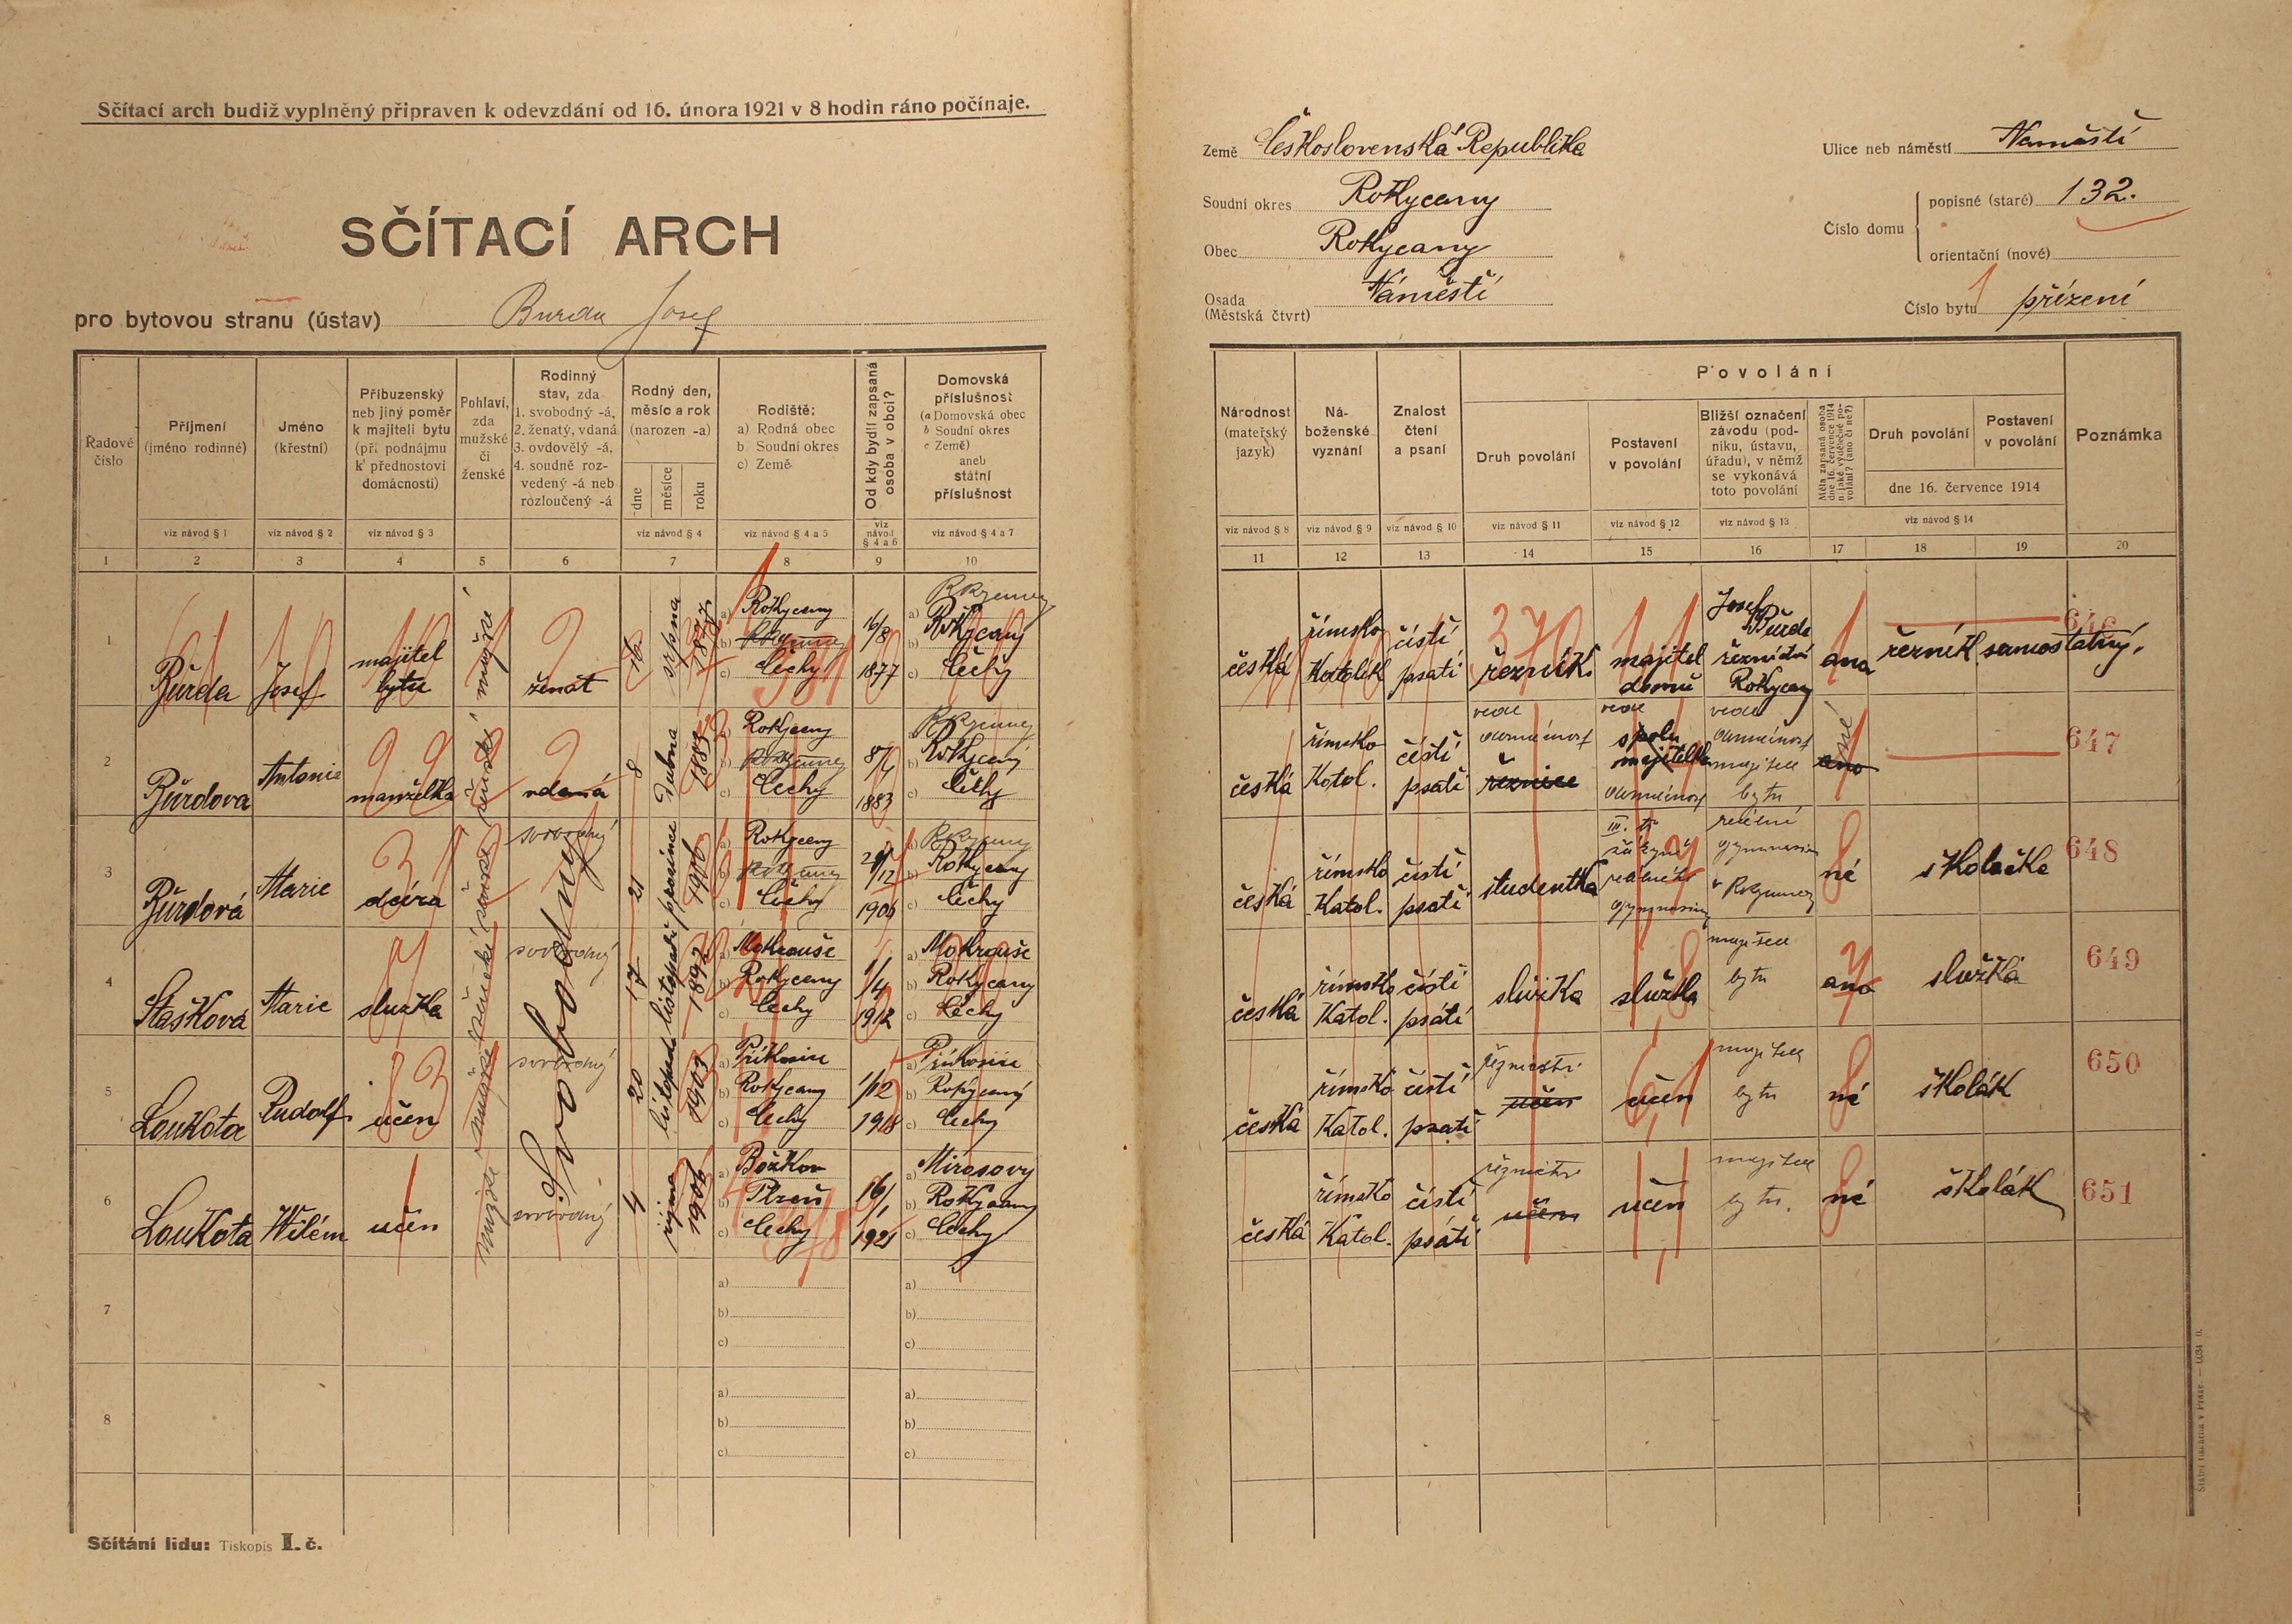 Sčítací arch budiž vyplněný připraven k odevzdání od 16. února 1921 v 8 hodin ráno počínaje.
SČÍTACÍ ARCH
pro bytovou stranu (ústav) Burda Josef
Země Československá Republika
Soudní okres Rokycany
Obec Rokycany
Osada (Městská čtvrt) Náměstí
Ulice neb náměstí Naměstí
Číslo domu
popisné (staré) 132.
orientační (nové)
Číslo bytu přízení
Řadové číslo
Příjmení (jméno rodinné)
Jméno (křestní)
Příbuzenský neb jiný poměr k majiteli bytu (při podnájmu k přednostovi domácnosti)
Pohlaví, zda mužské či ženské
Rodinný stav, zda 1. svobodný -á, 2. ženatý, vdaná 3. ovdovělý -á, 4. soudně rozvedený -á neb rozloučený -á
Rodný den, měsíc a rok (narozen -a)
dne měsíce roku
Rodiště: a) Rodná obec b) Soudní okres c) Země
Od kdy bydlí zapsaná osoba v obci?
Domovská příslušnost (a Domovská obec b Soudní okres c Země) aneb státní příslušnost
viz návod § 1 viz návod § 2 viz návod § 3 viz návod § 4 viz návod § 4 a 5 viz návod § 4 a 6 viz návod § 4 a 7
1 2 3 4 5 6 7 8 9 10
Národnost (mateřský jazyk)
Náboženské vyznání
Znalost čtení a psaní
Povolání
Druh povolání
Postavení v povolání
Bližší označení závodu (podniku, ústavu, úřadu), v němž se vykonává toto povolání
Měla zapsaná osoba dne 16. července 1914 nějaké výdělečné povolání? (ano či ne?)
Druh povolání
Postavení v povolání
dne 16. července 1914
Poznámka
viz návod § 8 viz návod § 9 viz návod § 10 viz návod § 11 viz návod § 12 viz návod § 13 viz návod § 14
11 12 13 14 15 16 17 18 19 20
1 Burda Josef majitel bytu mužské ženat 16 srpna 1877 a) Rokycany c) Čechy 16/8 1877 a) Rokycany c) Čechy
česká římsko Katolík čísti psati 370 řezník majitel domu Josef Burda řeznictví Rokycany ano řezník samostatný. 646
2 Burdova Antonie manželka ženské vdaná 8 dubna 1883 a) Rokycany c) Čechy 8/4 1883 b) Rokycany c) Čechy
česká římsko Katol. čísti psati řeznice spolu majitelka majitele bytu ano né 647
3 Burdová Marie dcéra ženské svobodný 21 prosince 1906 a) Rokycany c) Čechy 21/12 1906 b) Rokycany c) Čechy
česká římsko Katol. čísti psati studentka III. tř. žákyně reálné gymnasium v Rokycanech né školačka 648
4 Stašková Marie služka ženské svobodný 17 listopadu 1892 a) Mokrouše b) Rokycany c) Čechy 1/4 1912 a) Mokrouše b) Rokycany c) Čechy
česká římsko Katol. čísti psáti služka služka majitele bytu ano služká 649
5 Loukota Rudolf učen mužské svobodný 20 listopadu 1903 a) Příkosice b) Rokycany c) Čechy 1/12 1918 a) Příkosice b) Rokycany c) Čechy
česká římsko Katol. čisti psati řeznictví učen učen majitele bytu né školák 650
6 Loukota Wilém učen mužské svobodný 4 října 1906 a) Božkov b) Plzeň c) Čechy 16/1 1921 a) Mirosovy b) Rokycany c) Čechy
česká římsko Katol. čísti psáti řeznictví učen učen majitele bytu. né školák 651
Svobodný
7 a) b) c) a) b) c)
8 a) b) c) a) b) c)
Sčítání lidu: Tiskopis I. č.
Státní tiskárna v Praze. — 6034 0.